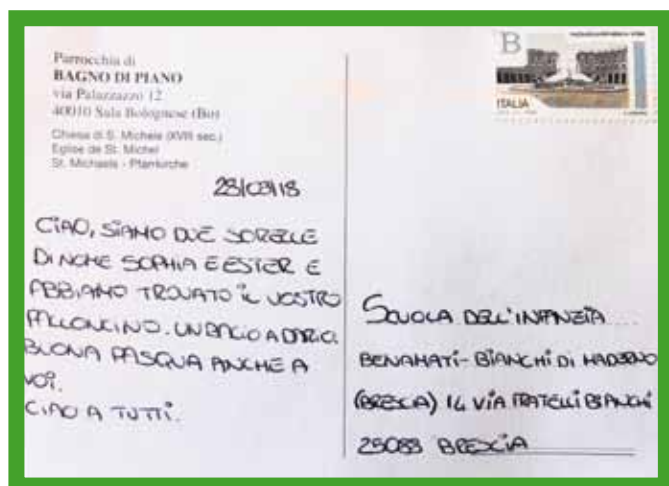 Parrocchia di
BAGNO DI PIANO
via Palazzazzo 12
40010 Sala Bolognese (Bo)
Chiesa di S. Michele (XVIII sec.)
Eglise de St. Michel
St. Michaels - Pfarrkirche
28/03/18
CIAO, SIAMO DUE SORELLE
DI NOME SOPHIA E ESTER E
ABBIAMO TROVATO IL VOSTRO
PALLONCINO. UN BACIO A DARIO.
BUONA PASQUA ANCHE A
VOI.
CIAO A TUTTI.
B
ITALIA
SCUOLA DELL'INFANZIA
BENAMATI-BIANCHI DI MADERNO
(BRESCIA) 14 VIA FRATELLI BIANCHI
25088 BRESCIA